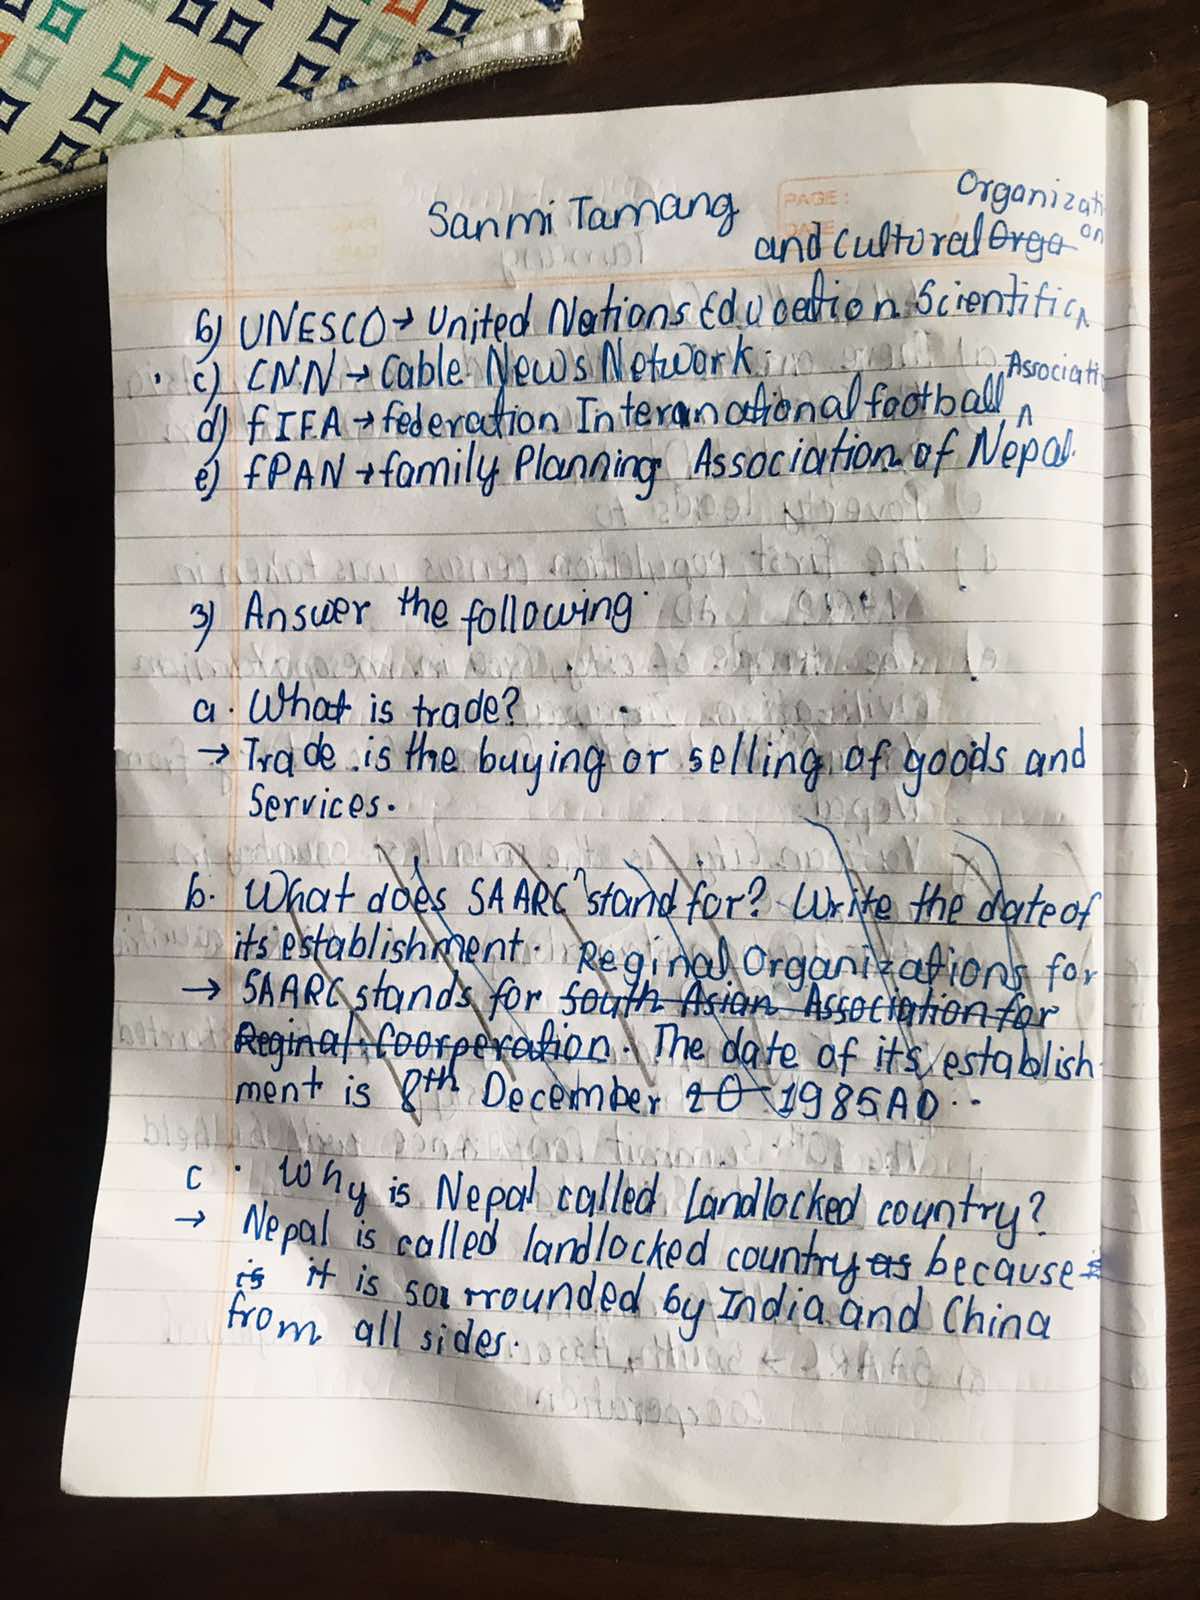 Sanmi Tamang
PAGE :
DATE :
Organizati
on
and Cultoral Orga
b) UNESCO → United Nations Education Scientific
c) CNN → Cable News Network
Associati
d) fIFA → federation Interanational football
e) fPAN → family Planning Association of Nepal.
3) Answer the following
a. What is trade?
→ Trade is the buying or selling of goods and
Services.
b. What does SAARC stand for? Write the date of
its establishment.
Reginal Organizations for
→ SAARC stands for South Asian Association for
Reginal Coorperation. The date of its establish
ment is 8th December 20 1985AD.
c. Why is Nepal called landlocked country?
→ Nepal is called landlocked country as because is
is it is sourrounded by India and China
from all sides.